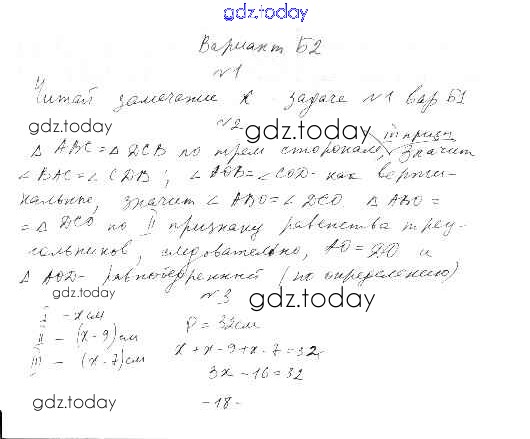 gdz.today
Вариант Б2
№1
Читай замечание к задаче №1 вар Б1
gdz.today
№2
gdz.today
III призн
△ ABC = △ DCB по трем сторонам, значит
∠ BAC = ∠ CDB; ∠ AOB = ∠ COD - как верти-
кальные, значит ∠ ABO = ∠ DCO. △ ABO =
= △ DCO по II признаку равенства треу-
гольников, следовательно, AO = DO и
△ AOD - равнобедренный (по определению)
gdz.today
№3
gdz.today
I - x см
P = 32 см
II - (x - 9) см
x + x - 9 + x - 7 = 32
III - (x - 7) см
3x - 16 = 32
gdz.today
- 18 -
gdz.today